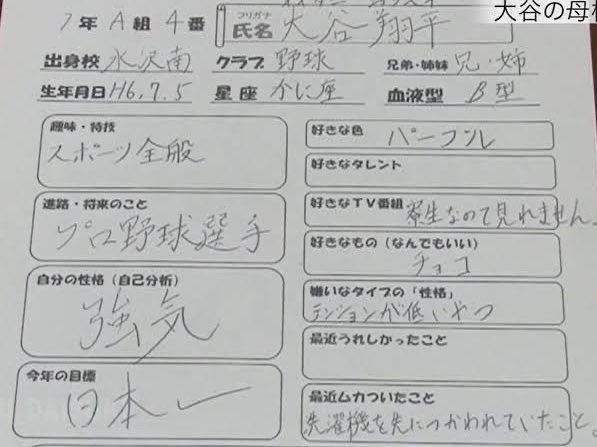 大谷の母校
1年 A組 4番
フリガナ
氏名 大谷 翔平
出身校 水沢南 クラブ 野球 兄弟・姉妹 兄・姉
生年月日 H6.7.5 星座 かに座 血液型 B型
趣味・特技
スポーツ全般
進路・将来のこと
プロ野球選手
自分の性格(自己分析)
強気
今年の目標
日本一
好きな色
パープル
好きなタレント
好きなTV番組
寮生なので見れません。
好きなもの(なんでもいい)
チョコ
嫌いなタイプの「性格」
テンションが低いやつ
最近うれしかったこと
最近ムカついたこと
洗濯機を先につかわれていたこと。